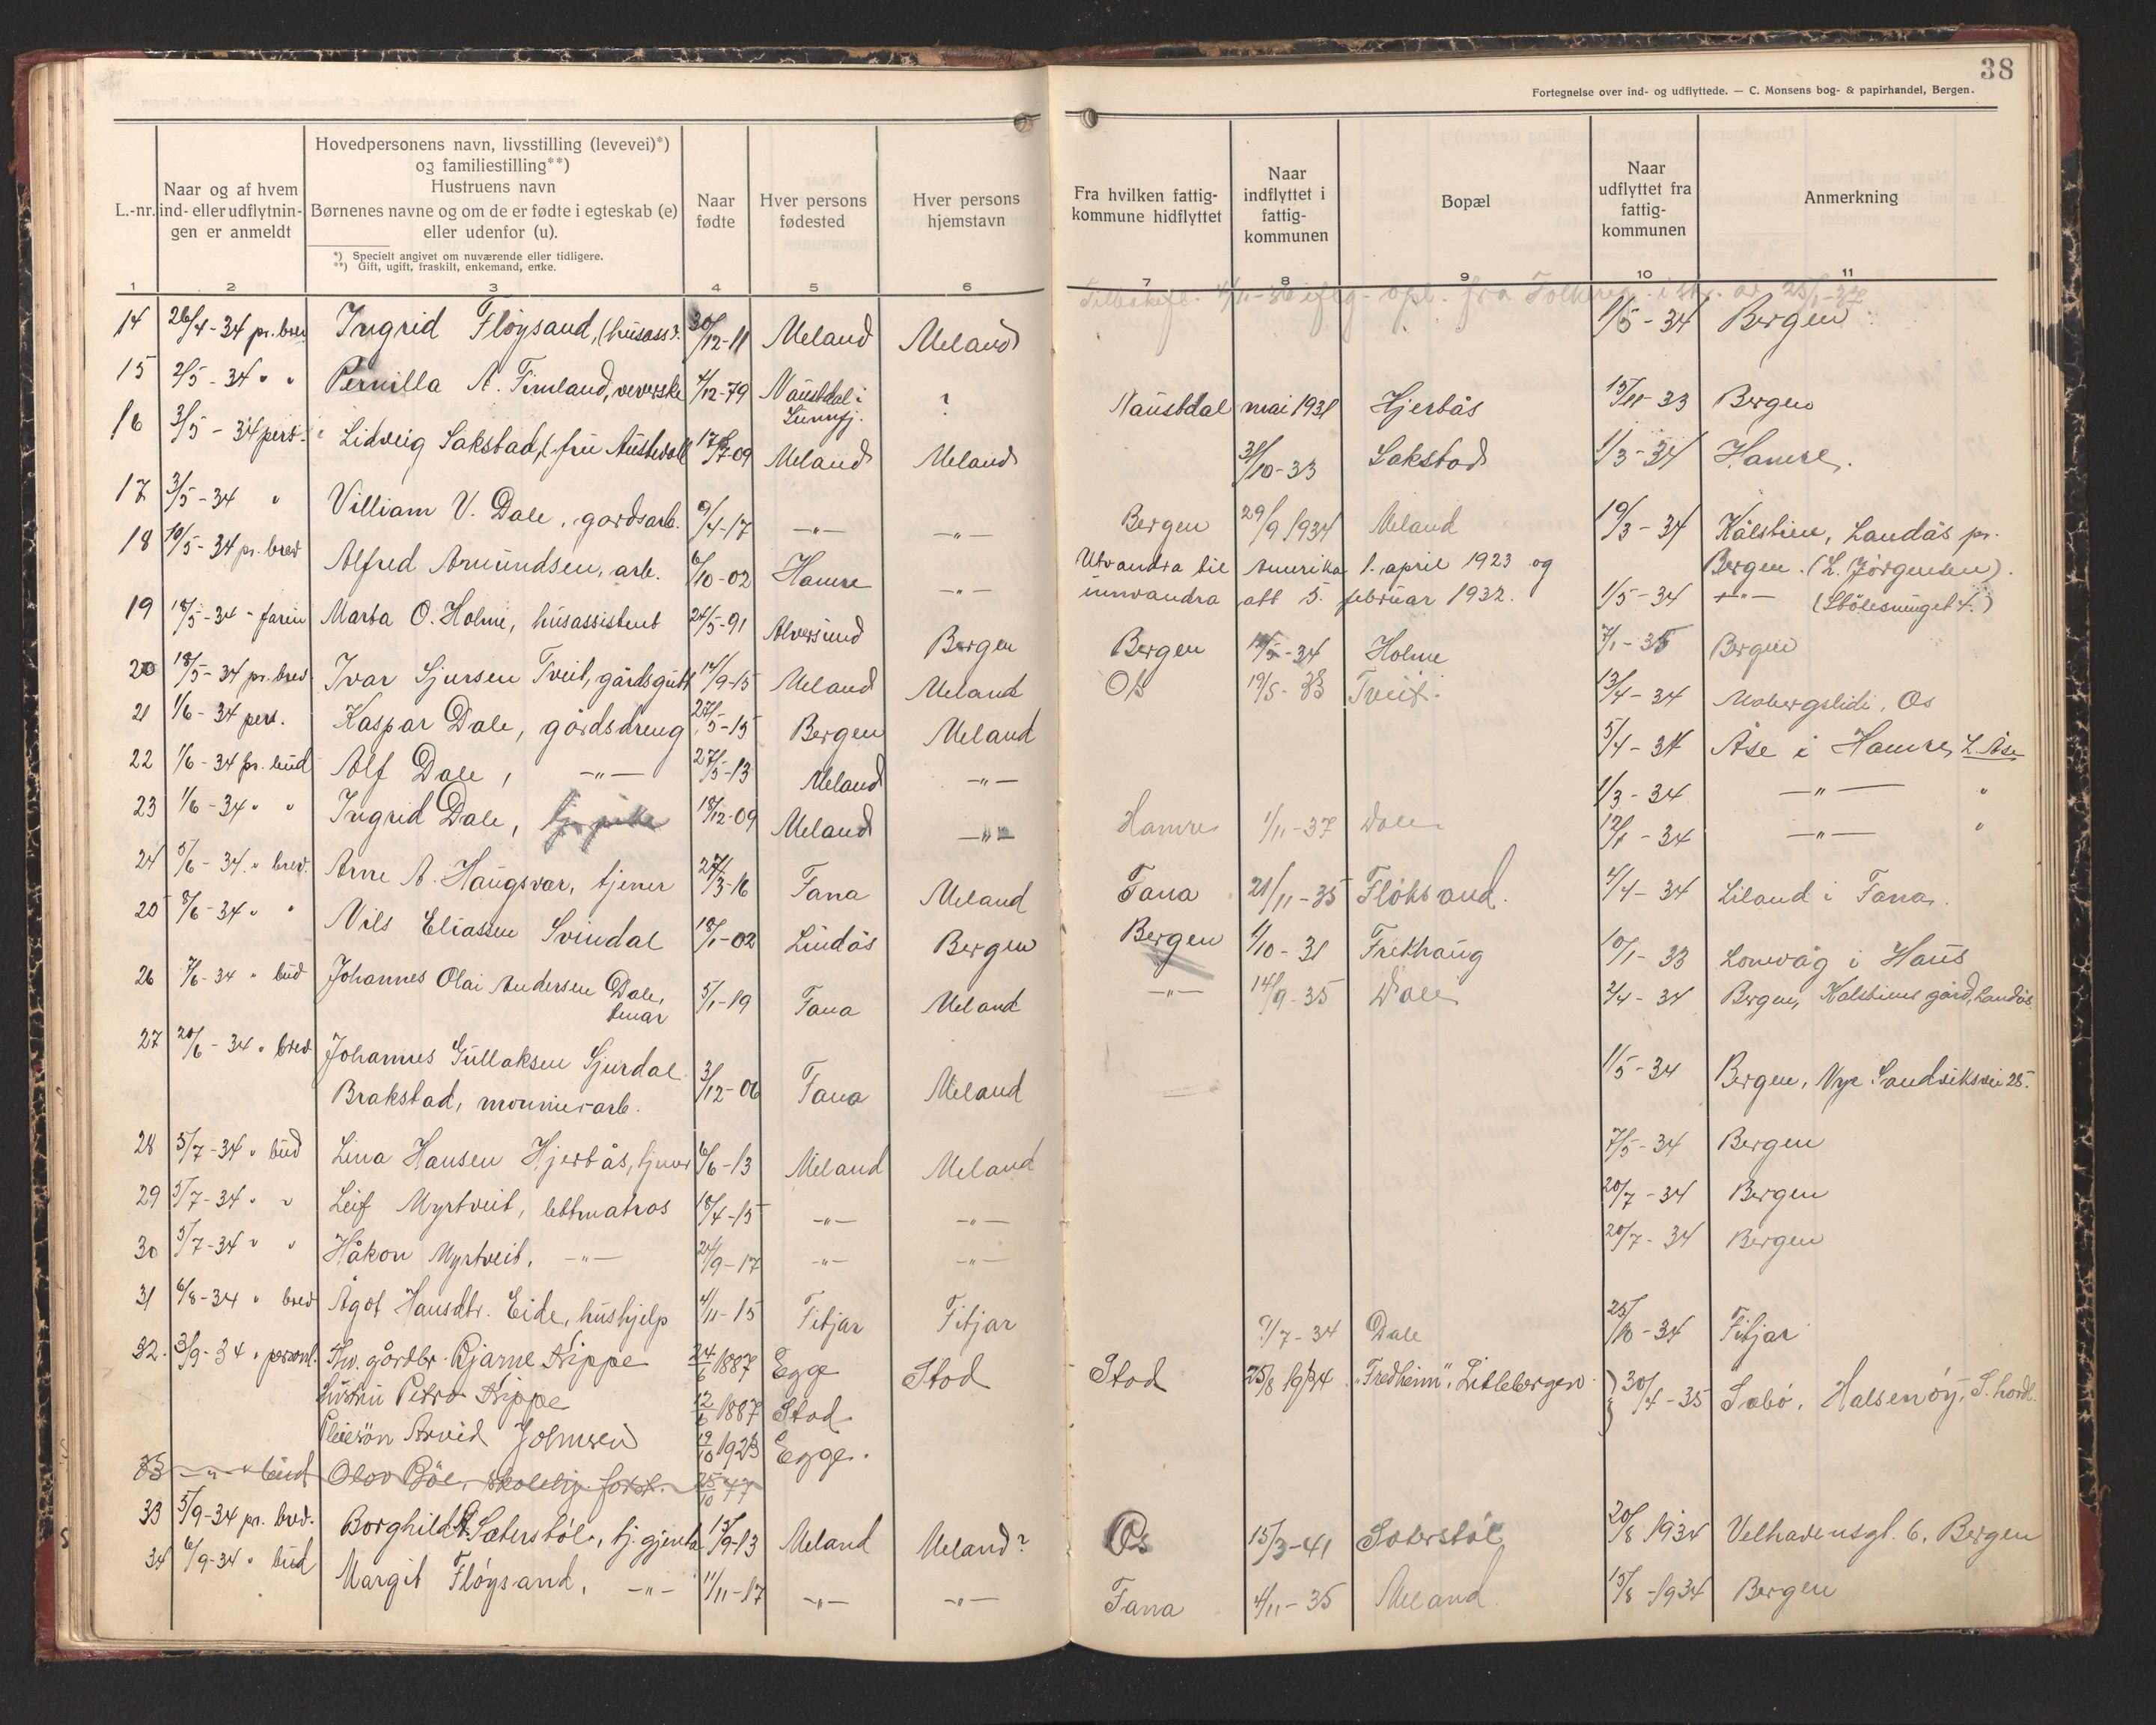 38
Fortegnelse over ind- og udflyttede. — C. Monsens bog- & papirhandel, Bergen.
L.-nr.
Naar og af hvem ind- eller udflytnin-gen er anmeldt
Hovedpersonens navn, livsstilling (levevei)*)
og familiestilling**)
Hustruens navn
Børnenes navne og om de er fødte i egteskab (e)
eller udenfor (u).
*) Specielt angivet om nuværende eller tidligere.
**) Gift, ugift, fraskilt, enkemand, enke.
Naar fødte
Hver persons fødested
Hver persons hjemstavn
Fra hvilken fattig-kommune hidflyttet
Naar indflyttet i fattig-kommunen
Bopæl
Naar udflyttet fra fattig-kommunen
Anmerkning
1 2 3 4 5 6 7 8 9 10 11
14 26/4-34 pr. brev Ingrid Fløysand, (husass). 30/12-11 Meland Meland 1/5-34 Bergen
15 2/5-34 " " Pernilla A. Timland, veverske 4/12-79 Naustdal i Sunnfj. ? Naustdal mai 1931 Hjertås 15/11-33 Bergen
16 3/5-34 pers. Lidveig Sakstad, f. fru Austevoll 17/7-09 Meland Meland 31/10-33 Sakstad 1/3-34 Hamre.
17 3/5-34 " Villiam V. Dale, gardsarb. 9/4-17 -"- -"- Bergen 29/9 1934 Meland 19/3-34 Kålstien, Landås pr.
Bergen. (L. Jörgensen).
18 10/5-34 pr. brev Alfred Amundsen, arb. 6/10-02 Hamre -"- Utvandra til Amerika 1. april 1923 og
innvandra att 5. februar 1932. 1/5-34 -"- (Stölesmuget 4.)
19 18/5-34 " faren Marta O. Holme, husassistent 24/5-91 Alversund Bergen Bergen -34 Holme 7/1-35 Bergen
20 18/5-34 pr. brev Ivar Sjursen Tveit, gårdsgutt 14/9-15 Meland Meland Os 19/5-38 Tveit. 13/4-34 Mobergslidi, Os
21 1/6-34 pers. Kaspar Dale, gårdsdreng 27/5-15 Bergen Meland 5/4-34 Åse i Hamre, L. Åse
22 1/6-34 pr. bud Alf Dale, -"- 27/5-13 Meland -"- 1/3-34 -"- "
23 1/6-34 " " Ingrid Dale, 18/12-09 Meland -"- Hamre 1/11-37 Dale 12/1-34 -"- "
24 5/6-34 " brev. Arne A. Haugsvær, tjener 27/3-16 Fana Meland Fana 21/11-35 Floksand. 4/4-34 Liland i Fana.
25 8/6-34 " " Nils Eliassen Svindal 18/1-02 Lindås Bergen Bergen 1/10-31 Frekhaug 10/1-33 Lonevåg i Haus
26 7/6-34 " bud Johannes Olai Andersen Dale,
tenar 5/1-19 Fana Meland -"- 14/9-35 Dale 2/4-34 Bergen, Kalstiens gård, Landås
27 20/6-34 " brev Johannes Gullaksen Sjurdal
Brakstad, monnierarb. 3/12-06 Fana Meland 1/5-34 Bergen, Nye Sandviksvei 25.
28 5/7-34 " bud Lina Hansen Hjertås, tjener 6/6-13 Meland Meland 7/5-34 Bergen
29 5/7-34 " " Leif Myrtveit, lettmatros 18/4-15 -"- -"- 20/7-34 Bergen
30 5/7-34 " " Håkon Myrtveit, -"- 24/9-17 -"- -"- 20/7-34 Bergen
31 6/8-34 " brev Ågot Hansdtr. Eide, hushjelp 4/11-15 Fitjar Fitjar ?/7-34 Dale 25/10-34 Fitjar
32. 3/9-34 " personl. Fhv. gårdbr. Bjarne Kippe 24/6 1887 Egge Stod Stod 25/8 1934 "Fredheim", Litlebergen 30/4-35 Sæbö, Halsenöy, S. hordl.
Hustru Petra Kippe 12/6 1887 Stod
Pleiesön Arvid Johnsen 19/10 1923 Egge.
33 -"- " bud Olav Böe, 25/10 77
33 5/9-34 pr. brev. Borghild Sæterstöl, tj. gjenta 13/9-13 Meland Meland? Os 15/3-41 Sæterstöl 20/8 1934 Velhavensgt. 6, Bergen
34 6/9-34 " bud Margit Flöysand, -"- 11/11-17 -"- -"- Fana 4/11-35 Meland 15/8-1934 Bergen